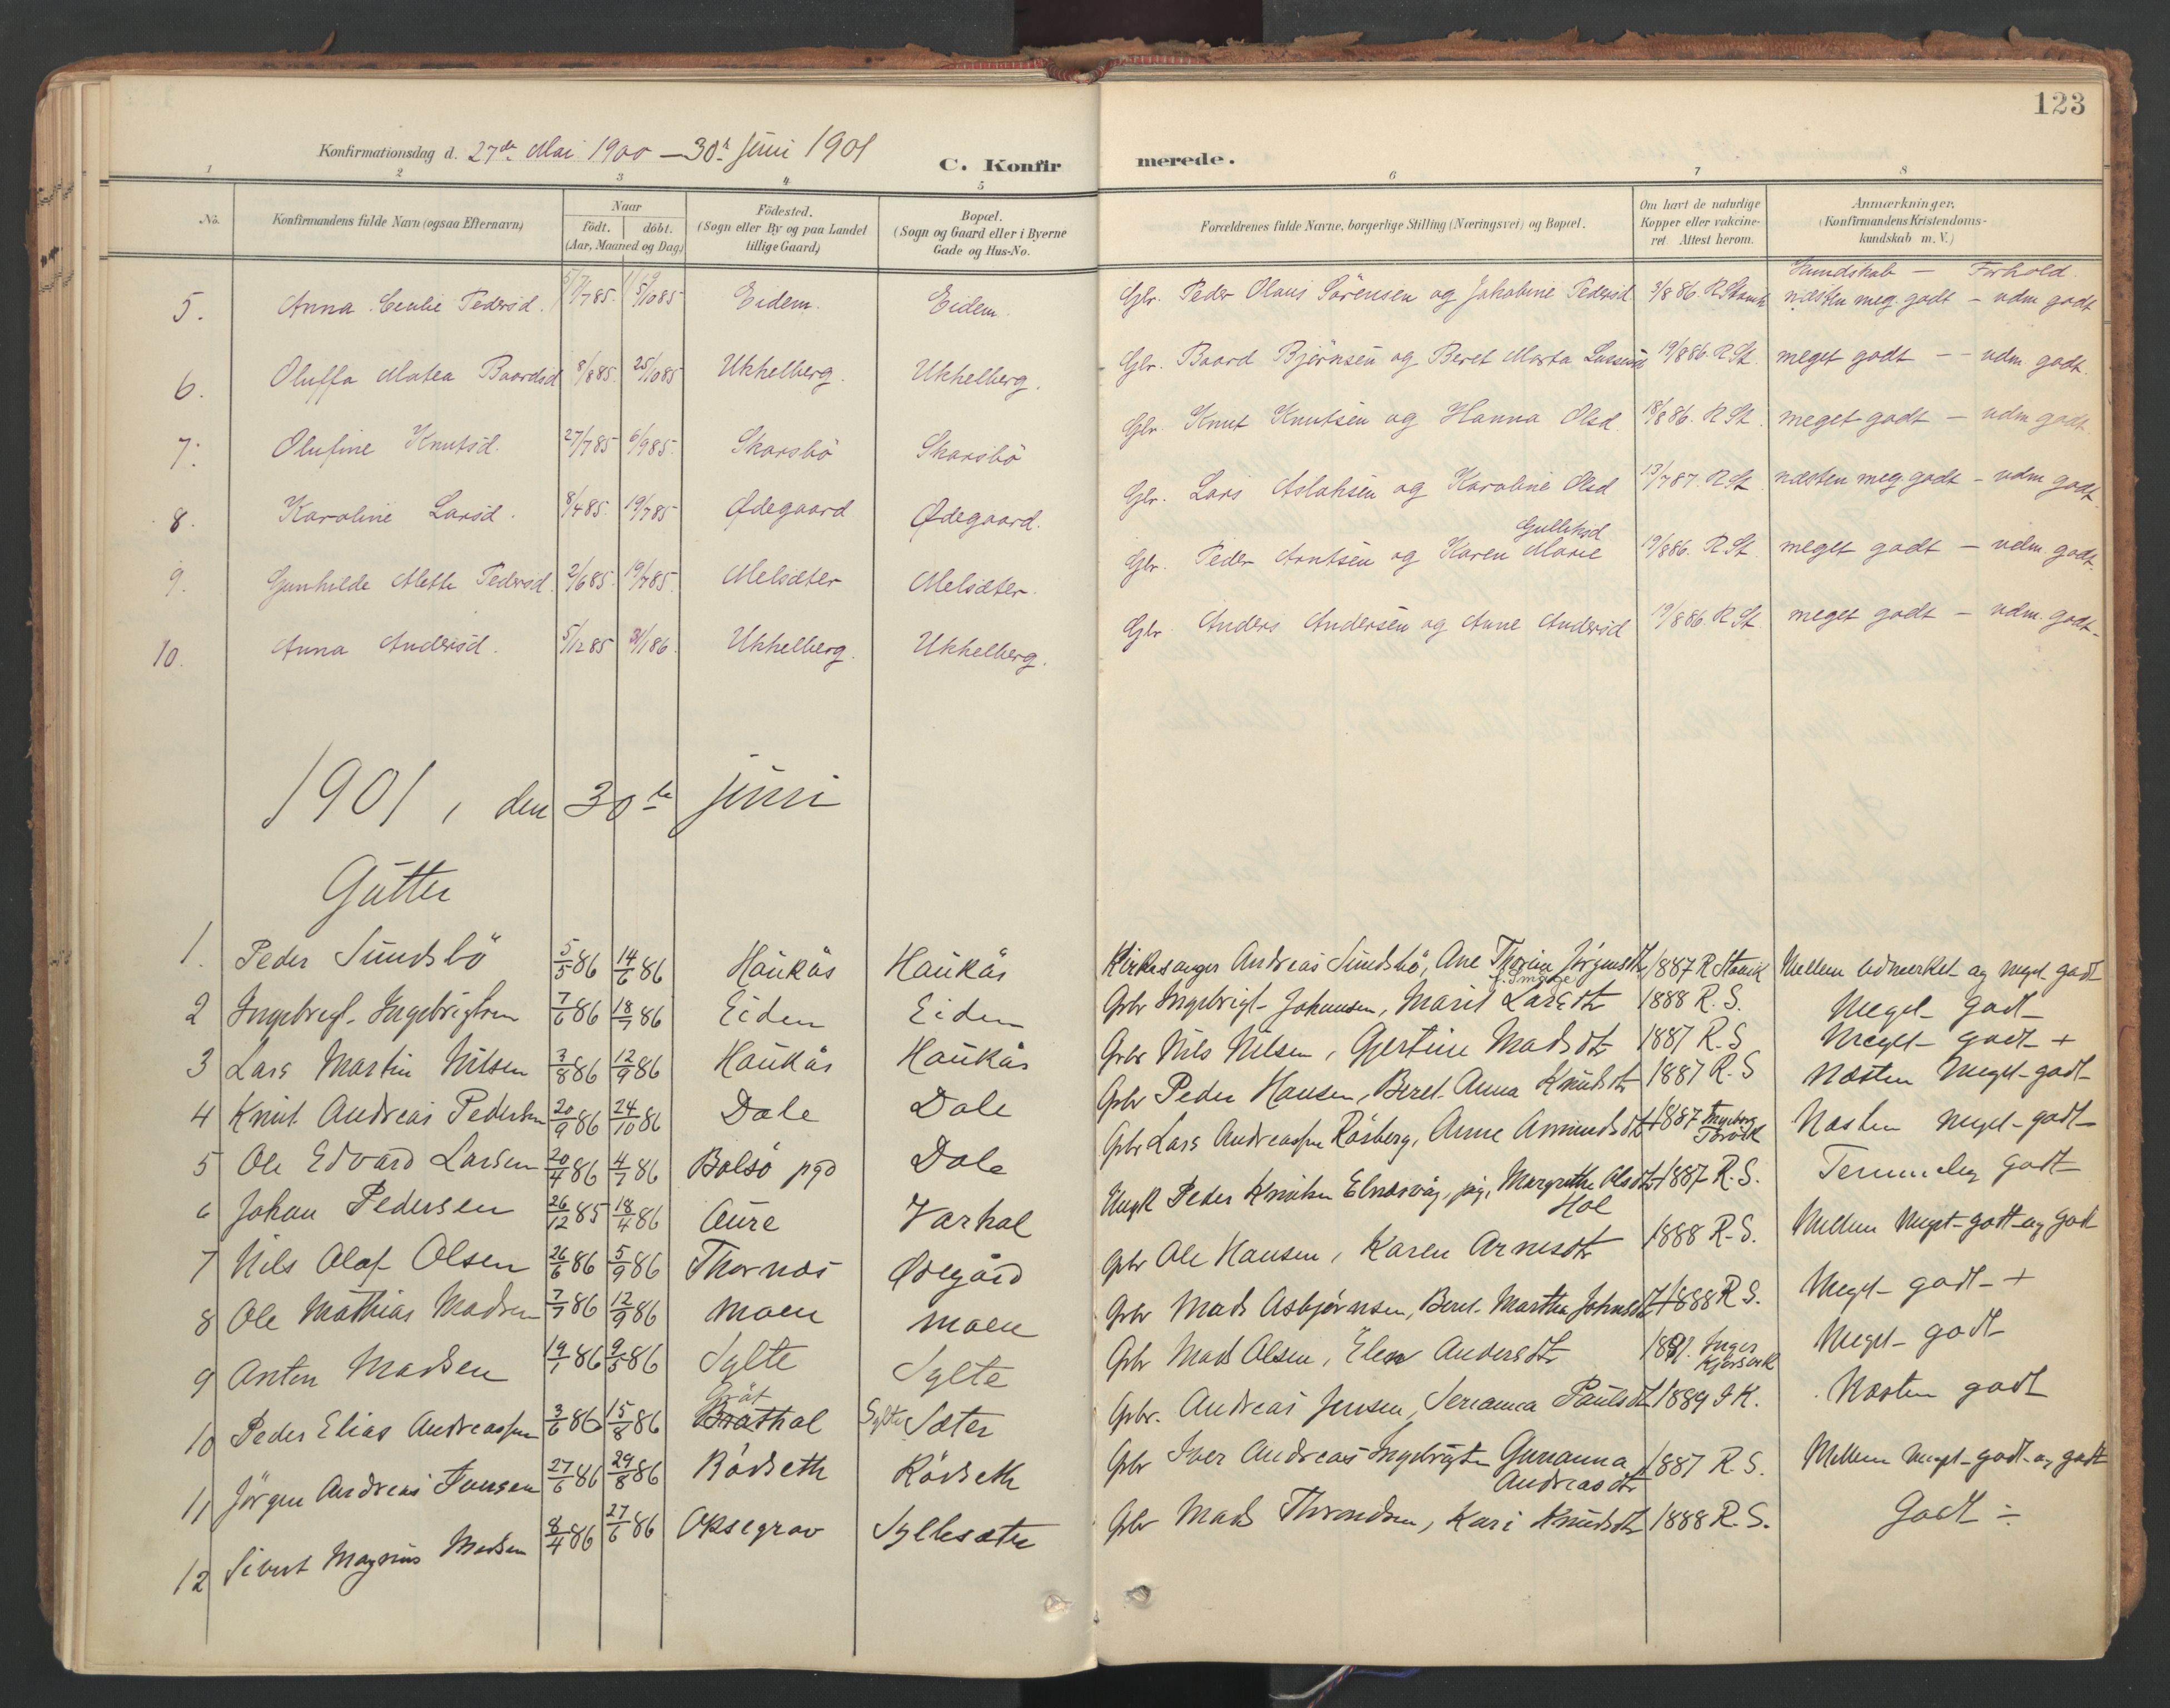 123
Konfirmationsdag d. 27de Mai 1900 – 30te juni 1901
C. Konfirmerede.
1 2 3 4 5 6 7 8
No. Konfirmandens fulde Navn (ogsaa Efternavn) Naar födt. döbt. (Aar, Maaned og Dag) Födested. (Sogn eller By og paa Landet tillige Gaard) Bopæl. (Sogn og Gaard eller i Byerne Gade og Hus-No. Forældrenes fulde Navne, borgerlige Stilling (Næringsvei) og Bopæl. Om havt de naturlige Kopper eller vakcineret. Attest herom. Anmærkninger. (Konfirmandens Kristendomskundskab m. V.)
Kundskab – Forhold.
5. Anna Pedersd. 85. 85 Eidem. Eidem. Gbr. Peder Olaus Sörensen og Jakobine Pedersd. 3/8 86. næsten meg. godt – udm godt
6. Oluffa Matea Baardsd 8/8 85. 25/10 85 Ukkelberg. Ukkelberg. Gbr. Baard Björnsen og Beret Marta 19/8 86. R St. meget godt – udm. godt.
7. Olufine Knutsd. 27/7 85 6/9 85. Skarsbö Skarsbö Gbr. Knut Knutsen og Hanna Olsd. 18/8 86. R St. meget godt – udm godt.
8. Karoline Larsd. 8/4 85. 19/7 85 Ødegaard Ødegaard. Gbr. Lars Aslaksen og Karoline Olsd 13/7 87. R St. næsten meg. godt – udm godt.
9. Gunhilde Mette Pedersd. 2/6 85. 19/7 85. Melsæter Melsæter. Gbr. Peder Arntsen og Karen Marie Gulliksd 19/8 86. R St. meget godt – udm. godt.
10. Anna Andersd. 5/12 85 31/1 86. Ukkelberg. Ukkelberg. Gbr. Anders Andersen og Anne Andersd 19/8 86. R St. meget godt – udm. godt.
1901, den 30te juni
Gutter
1. Peder Sundsbö 5/5 86 14/6 86 Haukås Haukås Kirkesanger Andreas Sundsbö, Ane 1887 Mellem udmerket og meget godt
2 Ingebrigt Ingebrigtsen 7/6 86 18/7 86 Eidem Eidem Gbr Ingebrigt Johansen, Marit Larsdtr 1888 R. S. Meget godt
3 Lars Martin Nilsen 3/8 86 12/9 86 Haukås Haukås Gbr Nils Nilsen, Gjertine Madsdtr 1887 R. S Meget godt +
4 Knut Andreas Pedersen 20/9 86 24/10 86 Dale Dale Gbr Peder Hansen, Beret Anna Knudsdtr 1887 R. S Næsten meget godt
5 Ole Edvard Larsen 20/4 86 4/7 86 Bolsö pgd Dale Gbr Lars Andreassen Råsberg, Anne Amundsdtr 1887 Ingeborg Næsten meget godt
6 Johan Pedersen 26/12 85 18/4 86 Aure Varhol Ungk Peder Knutsen Elnæsvåg, pig. Margrethe Olsdtr Hol 1887 R. S. Temmelig godt
7 Nils Olaf Olsen 26/6 86 5/9 86 Thornæs Ødegård Gbr Ole Hansen, Karen Arnesdtr 1888 R. S. Mellem meget godt og godt
8 Ole Mathias Madsen 7/7 86 12/9 86 Moen Moen Gbr Mads Asbjørnsen, Beret Martha Johnsdtr 1888 R. S. Meget godt +
9 Anton Madsen 19/1 86 9/5 86 Sylte Sylte Gbr Mads Olsen, Elen Andersdtr Inger Meget godt
10 Peder Elias Andreassen 3/6 86 15/8 86 Sylte Sæter Gbr. Andreas Jensen, Serianna Paulsdtr 1889 I K. Næsten godt
11 Jörgen Andreas 27/6 86 29/8 86 Rödseth Rödseth Gbr Iver Andreas Ingebrigtsen Gurianna Andreasdtr 1887 R. S. Mellem meget godt og godt
12 Sivert Magnus Madsen 8/4 86 27/6 86 Oksegrav Syltesæter Gbr Mads Throndsen, Kari Knudsdtr 1888 R. S. Godt ÷